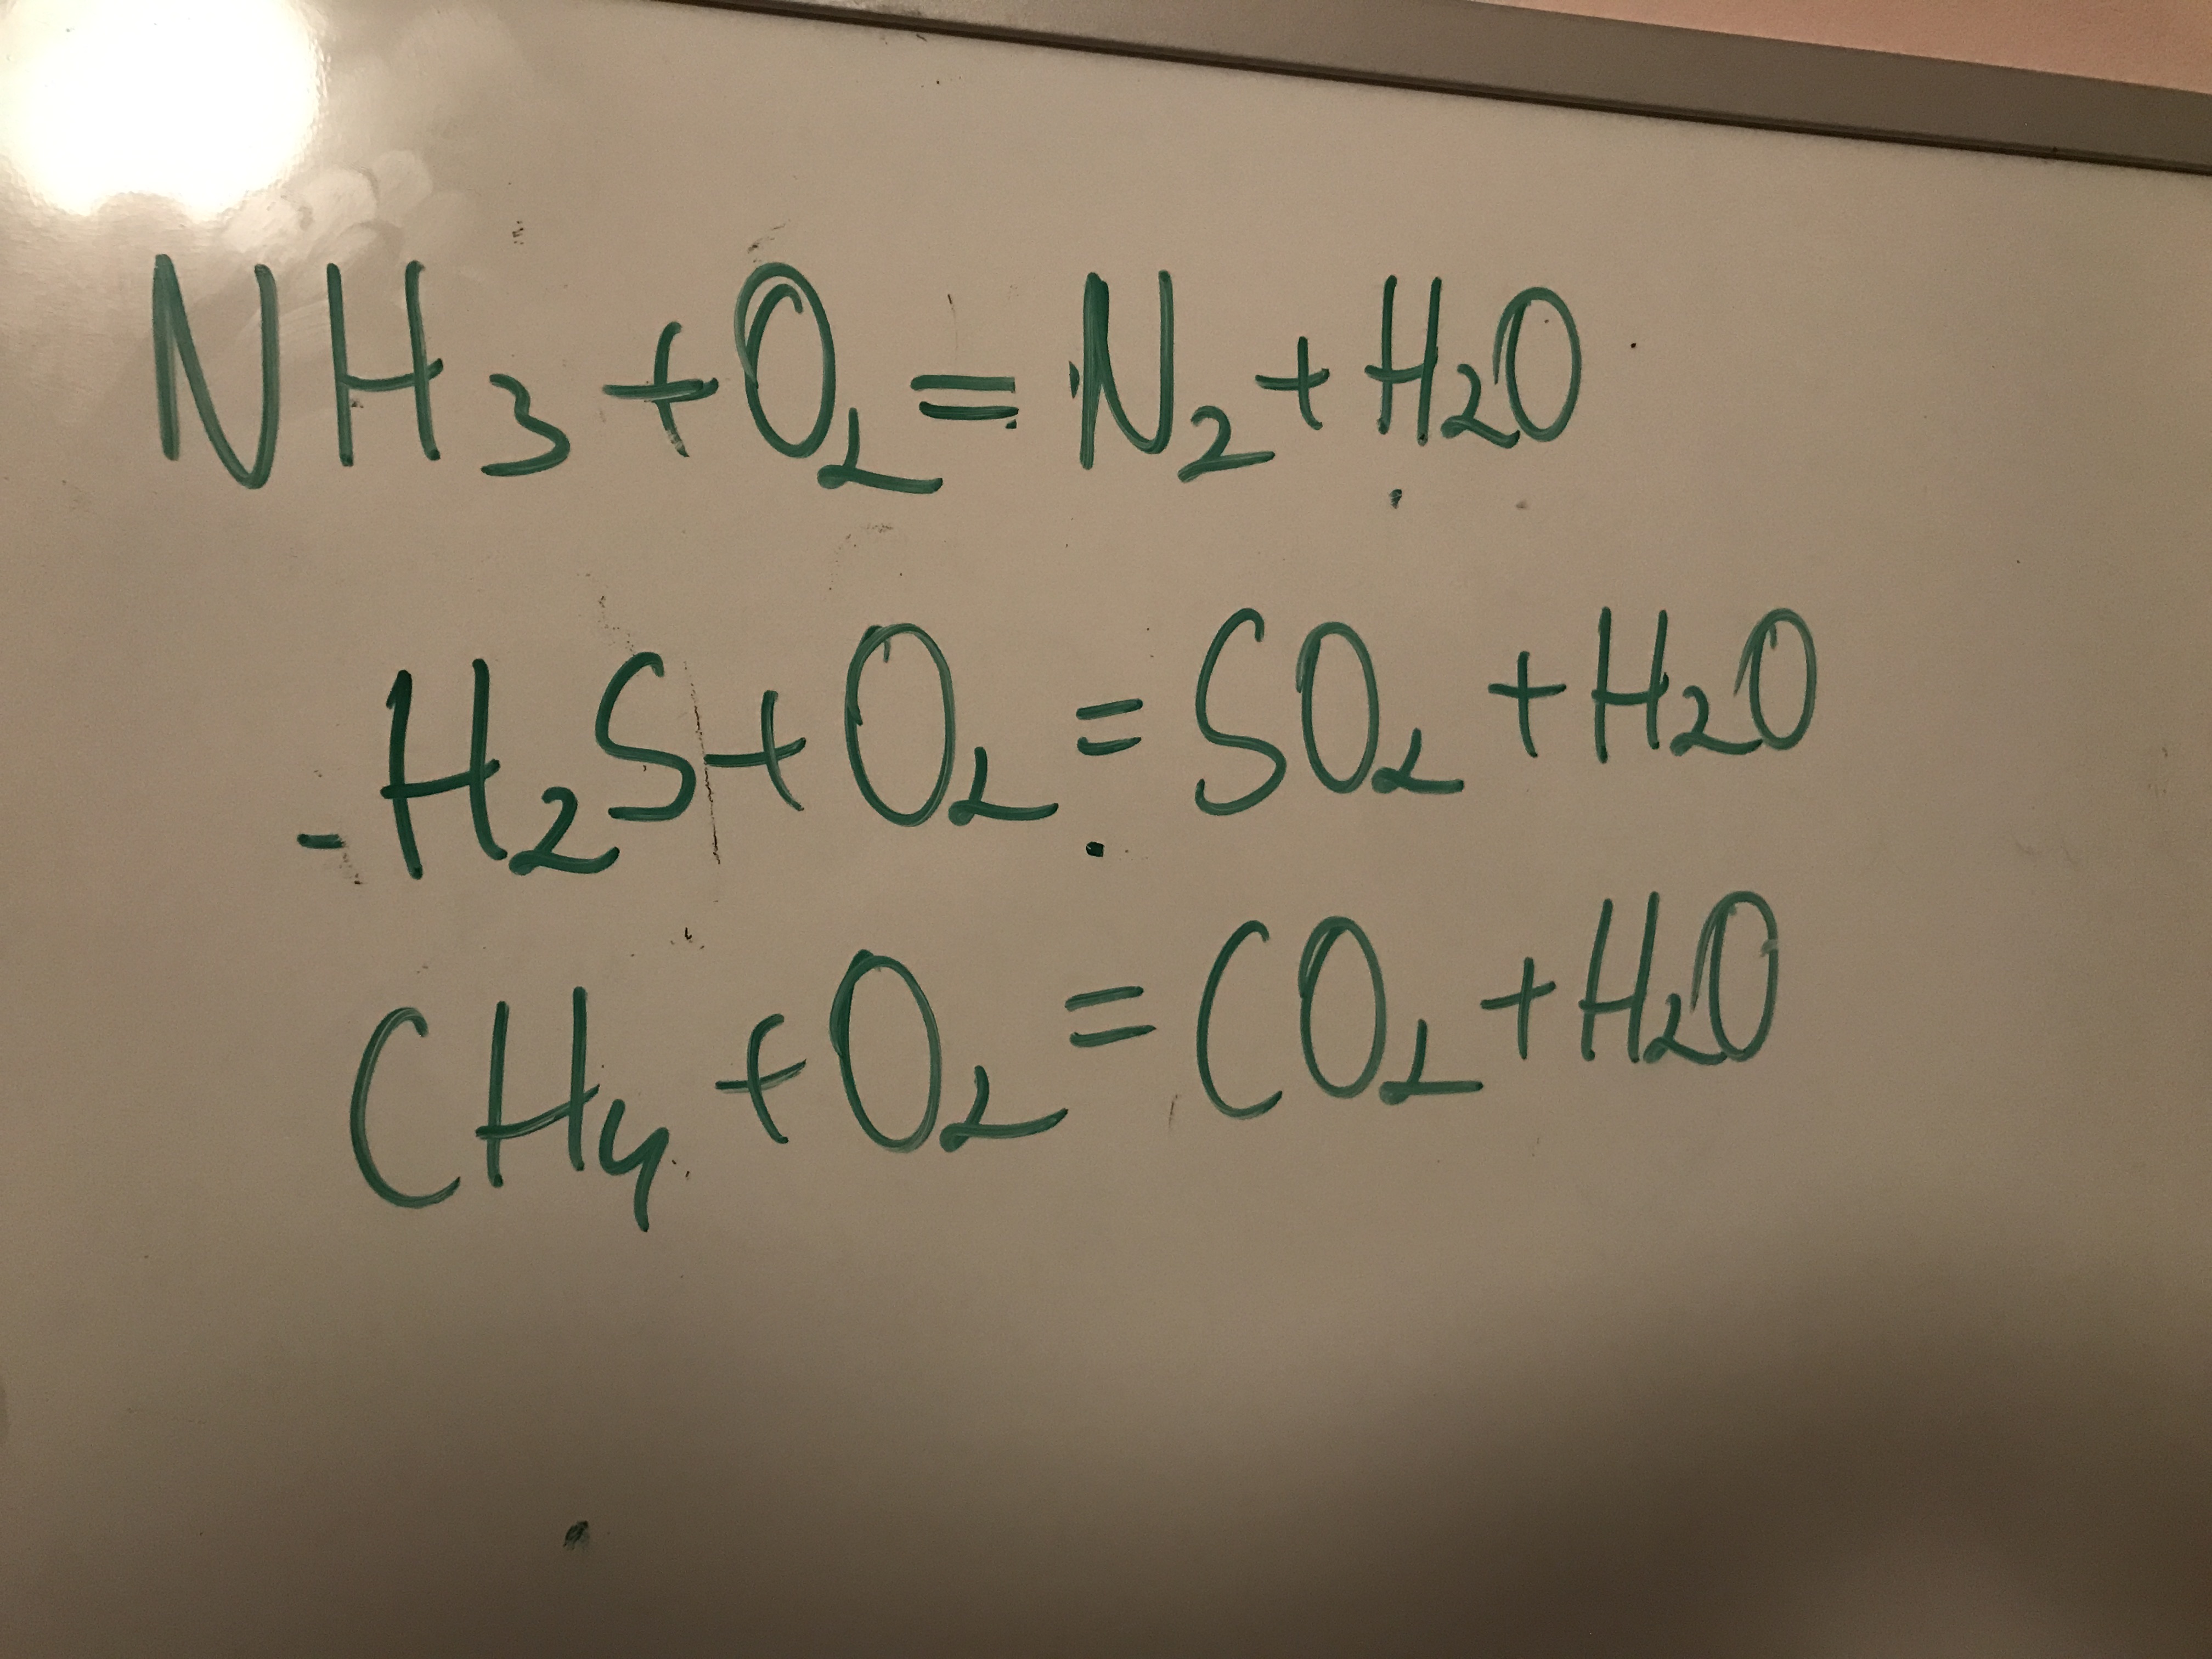 NH₃ + O₂ = N₂ + H₂O
- H₂S + O₂ = SO₂ + H₂O
CH₄ + O₂ = CO₂ + H₂O